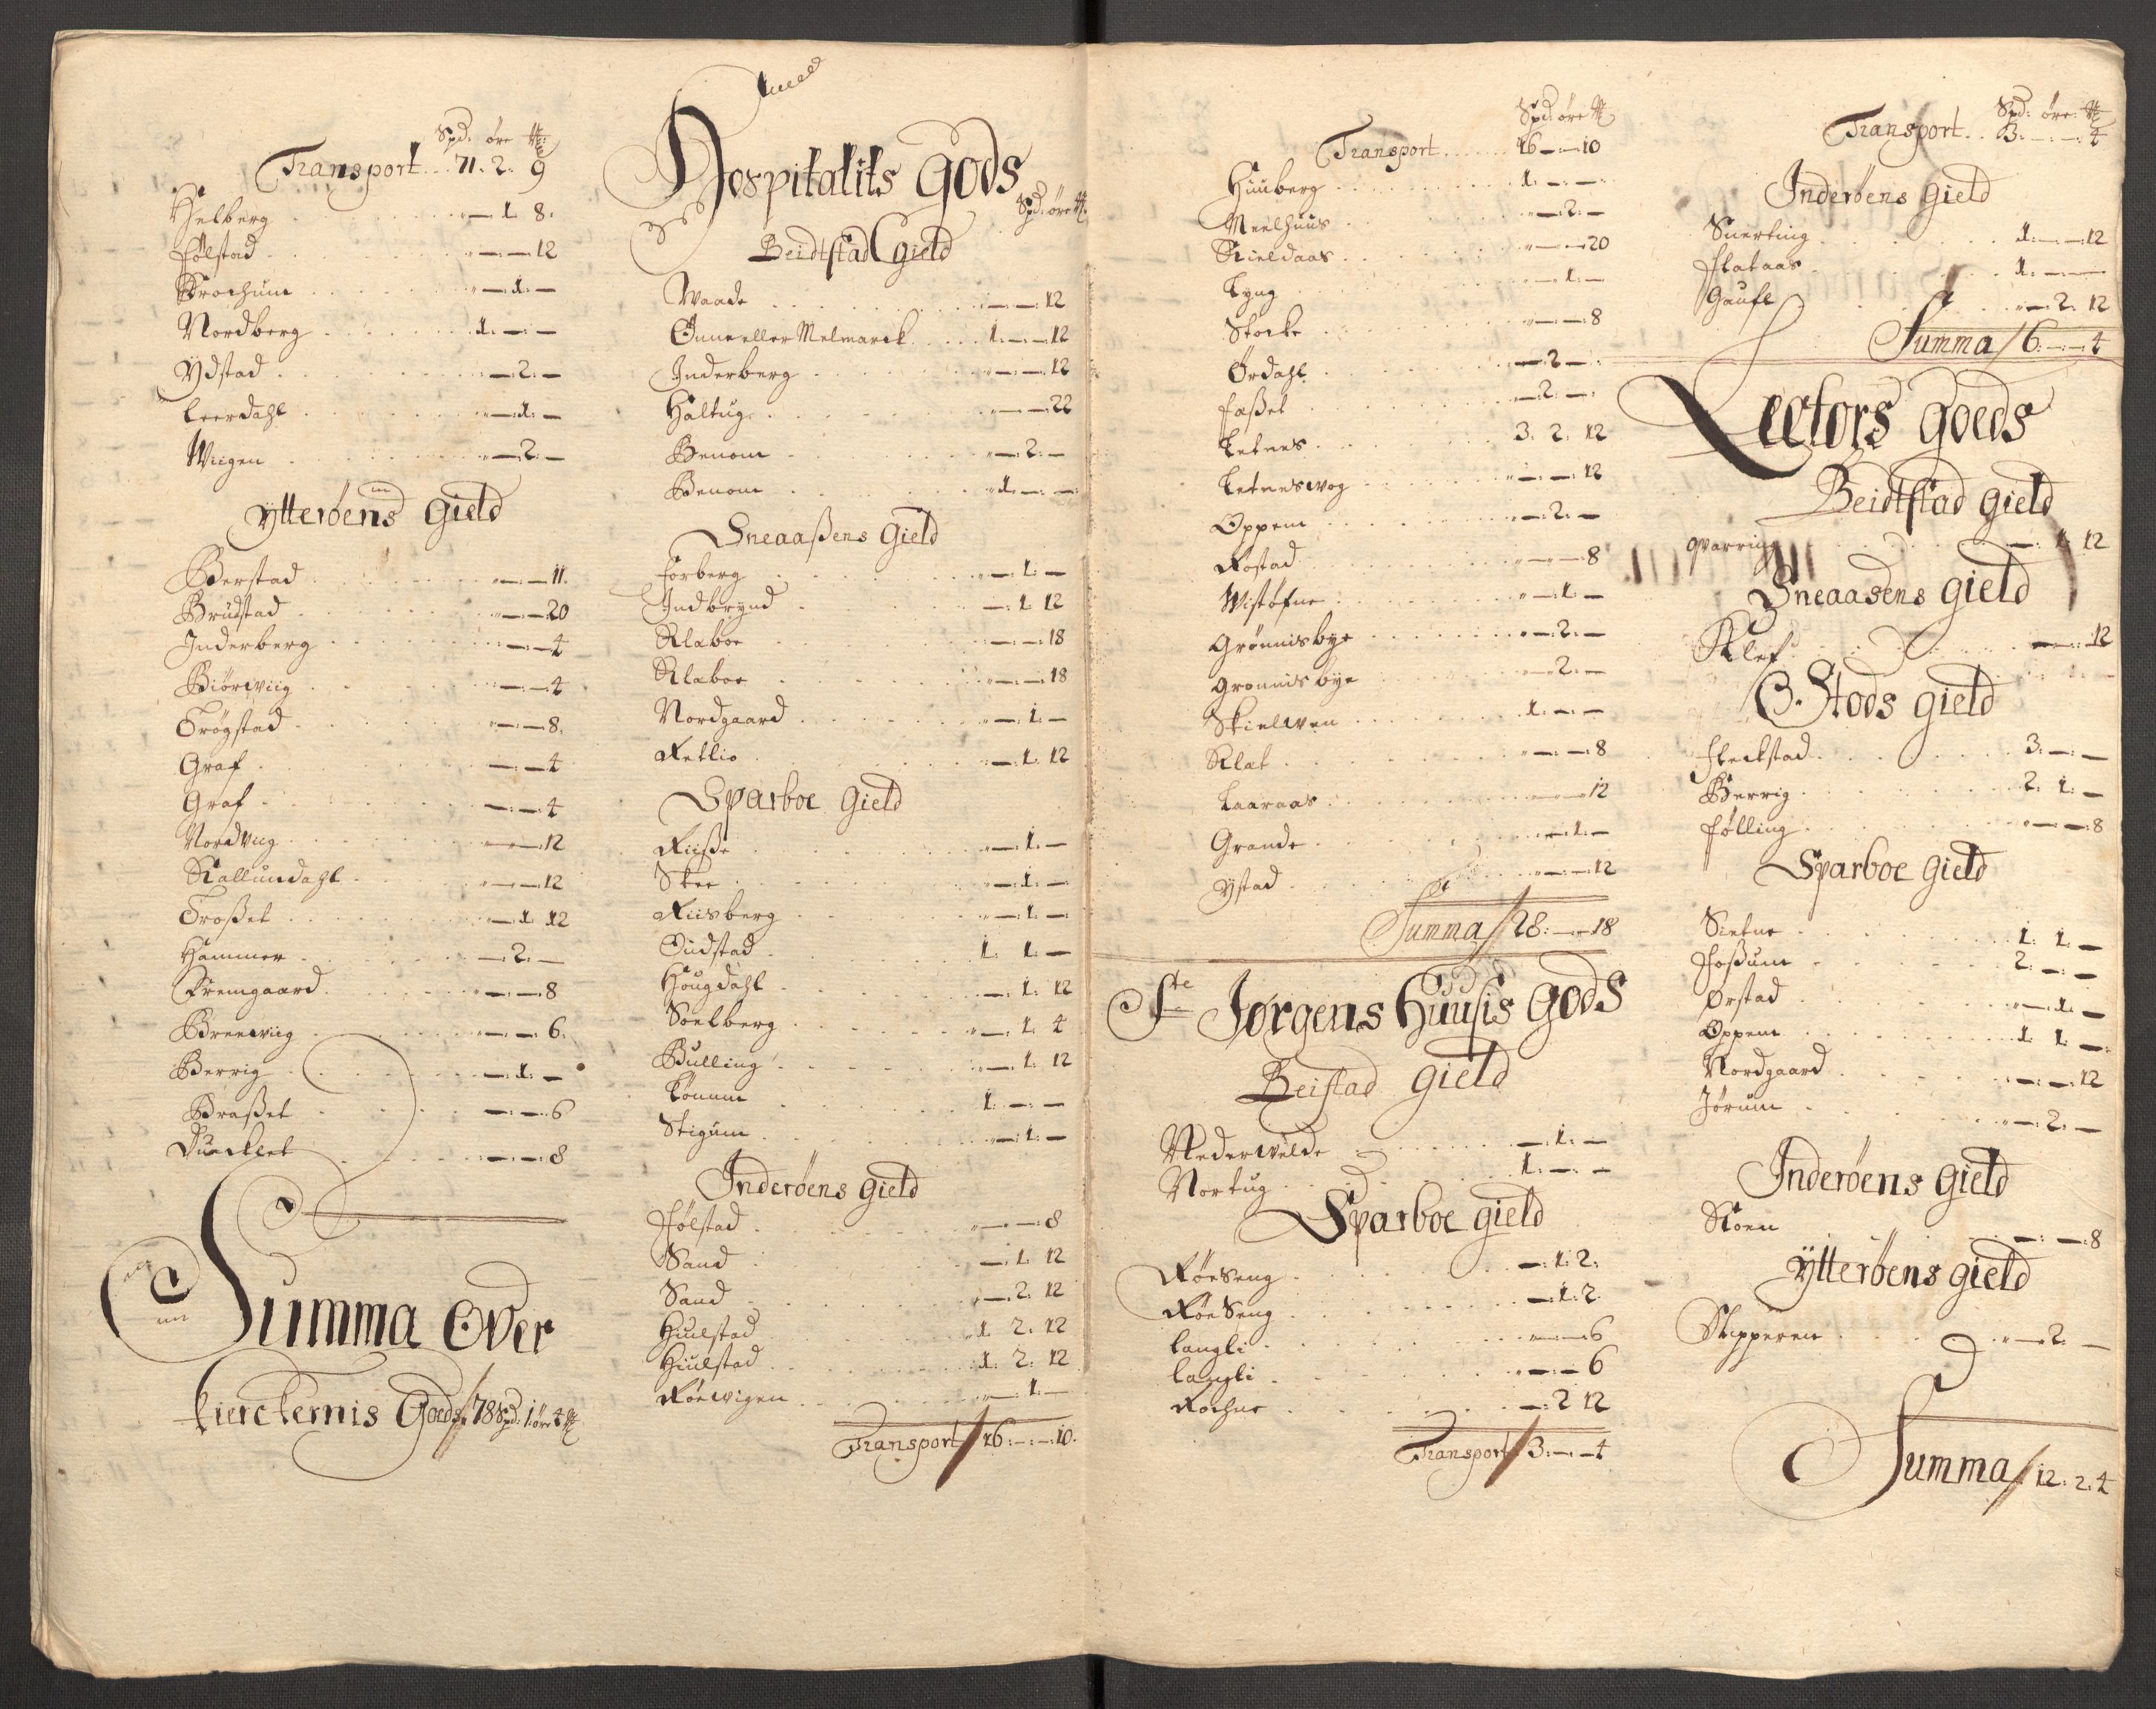 Spd: øre ℔:
Transport . . 71. 2. 9
Helberg . . . — 1 8.
Følstad . . . — — 12
Brochum . . . — 1. —
Nordberg . . . 1. — —
Ydstad . . . — 2. —
Leerdahl . . . — 1. —
Wiigen . . . — 2. —
Ytterøens Gield
Berstad . . . — — 11.
Brustad . . . — — 20
Inderberg . . . — — 4
Biørwiig . . . — — 4
Trøgstad . . . — — 8.
Graf . . . — — 4
Graf . . . — — 4
Nordviig . . . — — 12
Kallundahl . . . — — 12
Troßet . . . — 1 12
Hammer . . . — 2. —
Premgaard . . . — — 8
Breewiig . . . — — 6.
Berrig . . . — 1. —
Braßet . . . — — 6
Duncklet . . . — — 8
Summa Over
Kierckernis Goeds 78 Spd: 1 øre 4 ℔
Hospitalits Gods
Spd: øre ℔.
Beidtstad Gield
Waade . . . — — 12
Ønne eller Melmarck . . . 1. — 12
Inderberg . . . — — 12
Haltug . . . — — 22
Benom . . . — 2. —
Benom . . . 1. — —
Sneaaßens Gield
Forberg . . . — 1. —
Indbrynd . . . — 1 12
Klaboe . . . — — 18
Klaboe . . . — — 18
Nordgaard . . . — 1. —
Retlio . . . — 1. 12
Sparboe Gield
Riiße . . . — 1. —
Skee . . . — 1. —
Riisberg . . . — 1. —
Oudstad . . . 1. 1. —
Hougdahl . . . — 1. 12
Soelberg . . . — 1. 4
Bulling . . . — 1. 12
Tønnm . . . 1. — —
Stigum . . . — 1. —
Inderøens Gield
Følstad . . . — — 8
Sand . . . — 1. 12
Sand . . . — 2. 12
Huulstad . . . 1 2. 12
Hiulstad . . . 1. 2. 12
Røewigen . . . — 1. —
Transport 16. — 10.
Spd: øre ℔
Transport . . . 16 — 10
Huuberg . . . 1. — —
Meelhuus . . . — 2. —
Kieldaas . . . — — 20
Lyng . . . — 1. —
Stocke . . . — — 8
Ørdahl . . . — 2 —
Faßet . . . — 2. —
Letnes . . . 3. 2. 12
Letneswog . . . — — 12
Oppem . . . — 2. —
Rostad . . . — — 8
Wistøfne . . . — 1. —
Grønnisbye . . . — 2. —
Gronnisbye . . . — 2. —
Skielwen . . . 1. — —
Klat . . . — — 8
Laaraas . . . — — 12
Grande . . . — 1. —
Ystad . . . — — 12
Summa 28. — 18
Ste Jørgens Huusis Gods
Beistad Gield
Nederwelde . . . — 1. —
Nortug . . . 1. — —
Sparboe Gield
Røeseng . . . — 1. 2.
Røeseng . . . — 1. 2.
Langli . . . — — 6
Langli . . . — — 6
Rochne . . . — 2 12
Transport 3. — 4
Spd: øre: ℔
Transport . . 3. — 4
Inderøens Gield
Suerting . . . 1. — 12
Flataas . . . 1. — —
Gaufl . . . — 2. 12
Summa 6. — 4
Lectors Goeds
Beidtstad Gield
Qvarring . . . — 1. 12
Sneaasens Gield
Klef . . . — — 12
B. Stods Gield
Fleckstad . . . 3. — —
Berrig . . . 2. 1. —
Følling . . . — — 8
Sparboe Gield
Sietne . . . 1. 1. —
Foßum . . . 2. — —
Ørstad . . . — 1. —
Oppem . . . 1. 1. —
Nordgaard . . . — — 12
Jørum . . . — 2. —
Inderøens Gield
Koen . . . — — 8
Ytterøens Gield
Skipperen . . . — 2. —
Summa 12. 2. 4